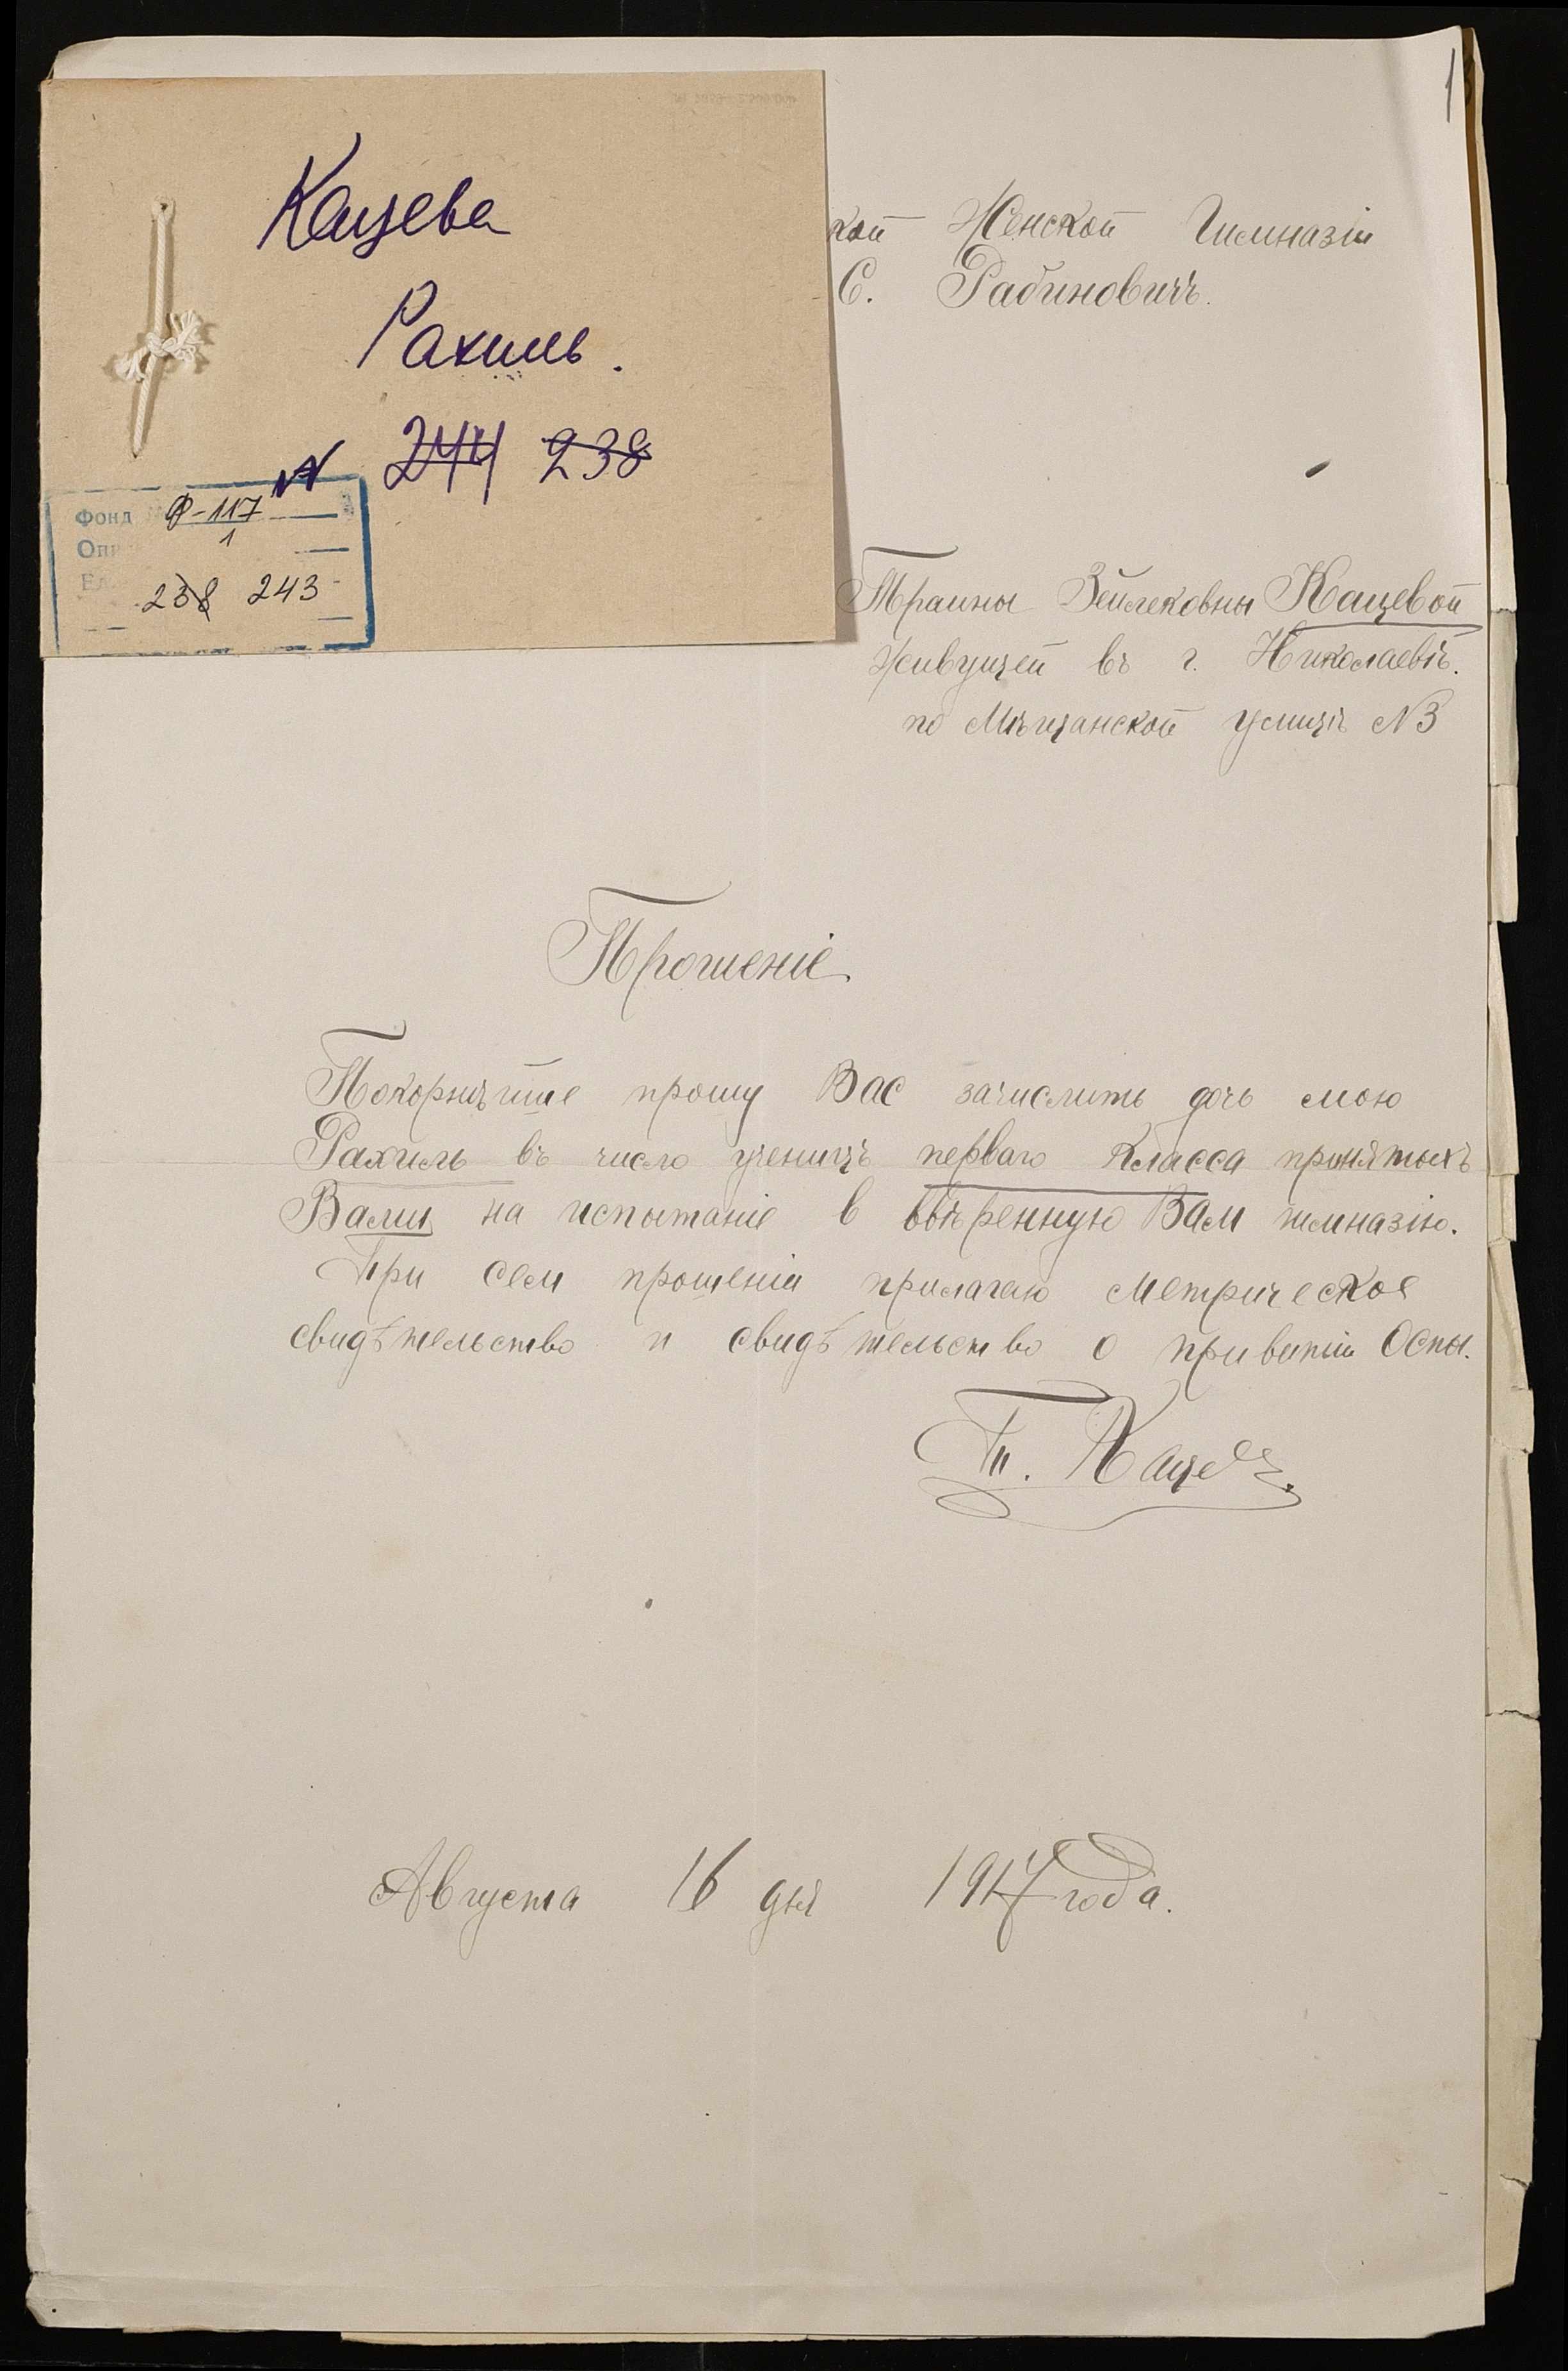 1
Кацева
Рахиль.
N 244 238
Фонд Ф-117
Оп 1
Ед 238 243
кой Женской Гимназіи
С. Рабиновичъ.
Траины Зейлековны Кацевой
живущей въ г. Николаевѣ.
по Мѣщанской улицѣ N3
Прошеніе
Покорнѣйше прошу Вас зачислить дочь мою
Рахиль въ число ученицъ перваго Класса принятыхъ
Вами на испытаніе в ввѣренную Вам гимназію.
При сем прошеніи прилагаю метрическое
свидѣтельство и свидѣтельство о привитіи Оспы.
Т. Кацева.
Августа 16 дня 1917 года.